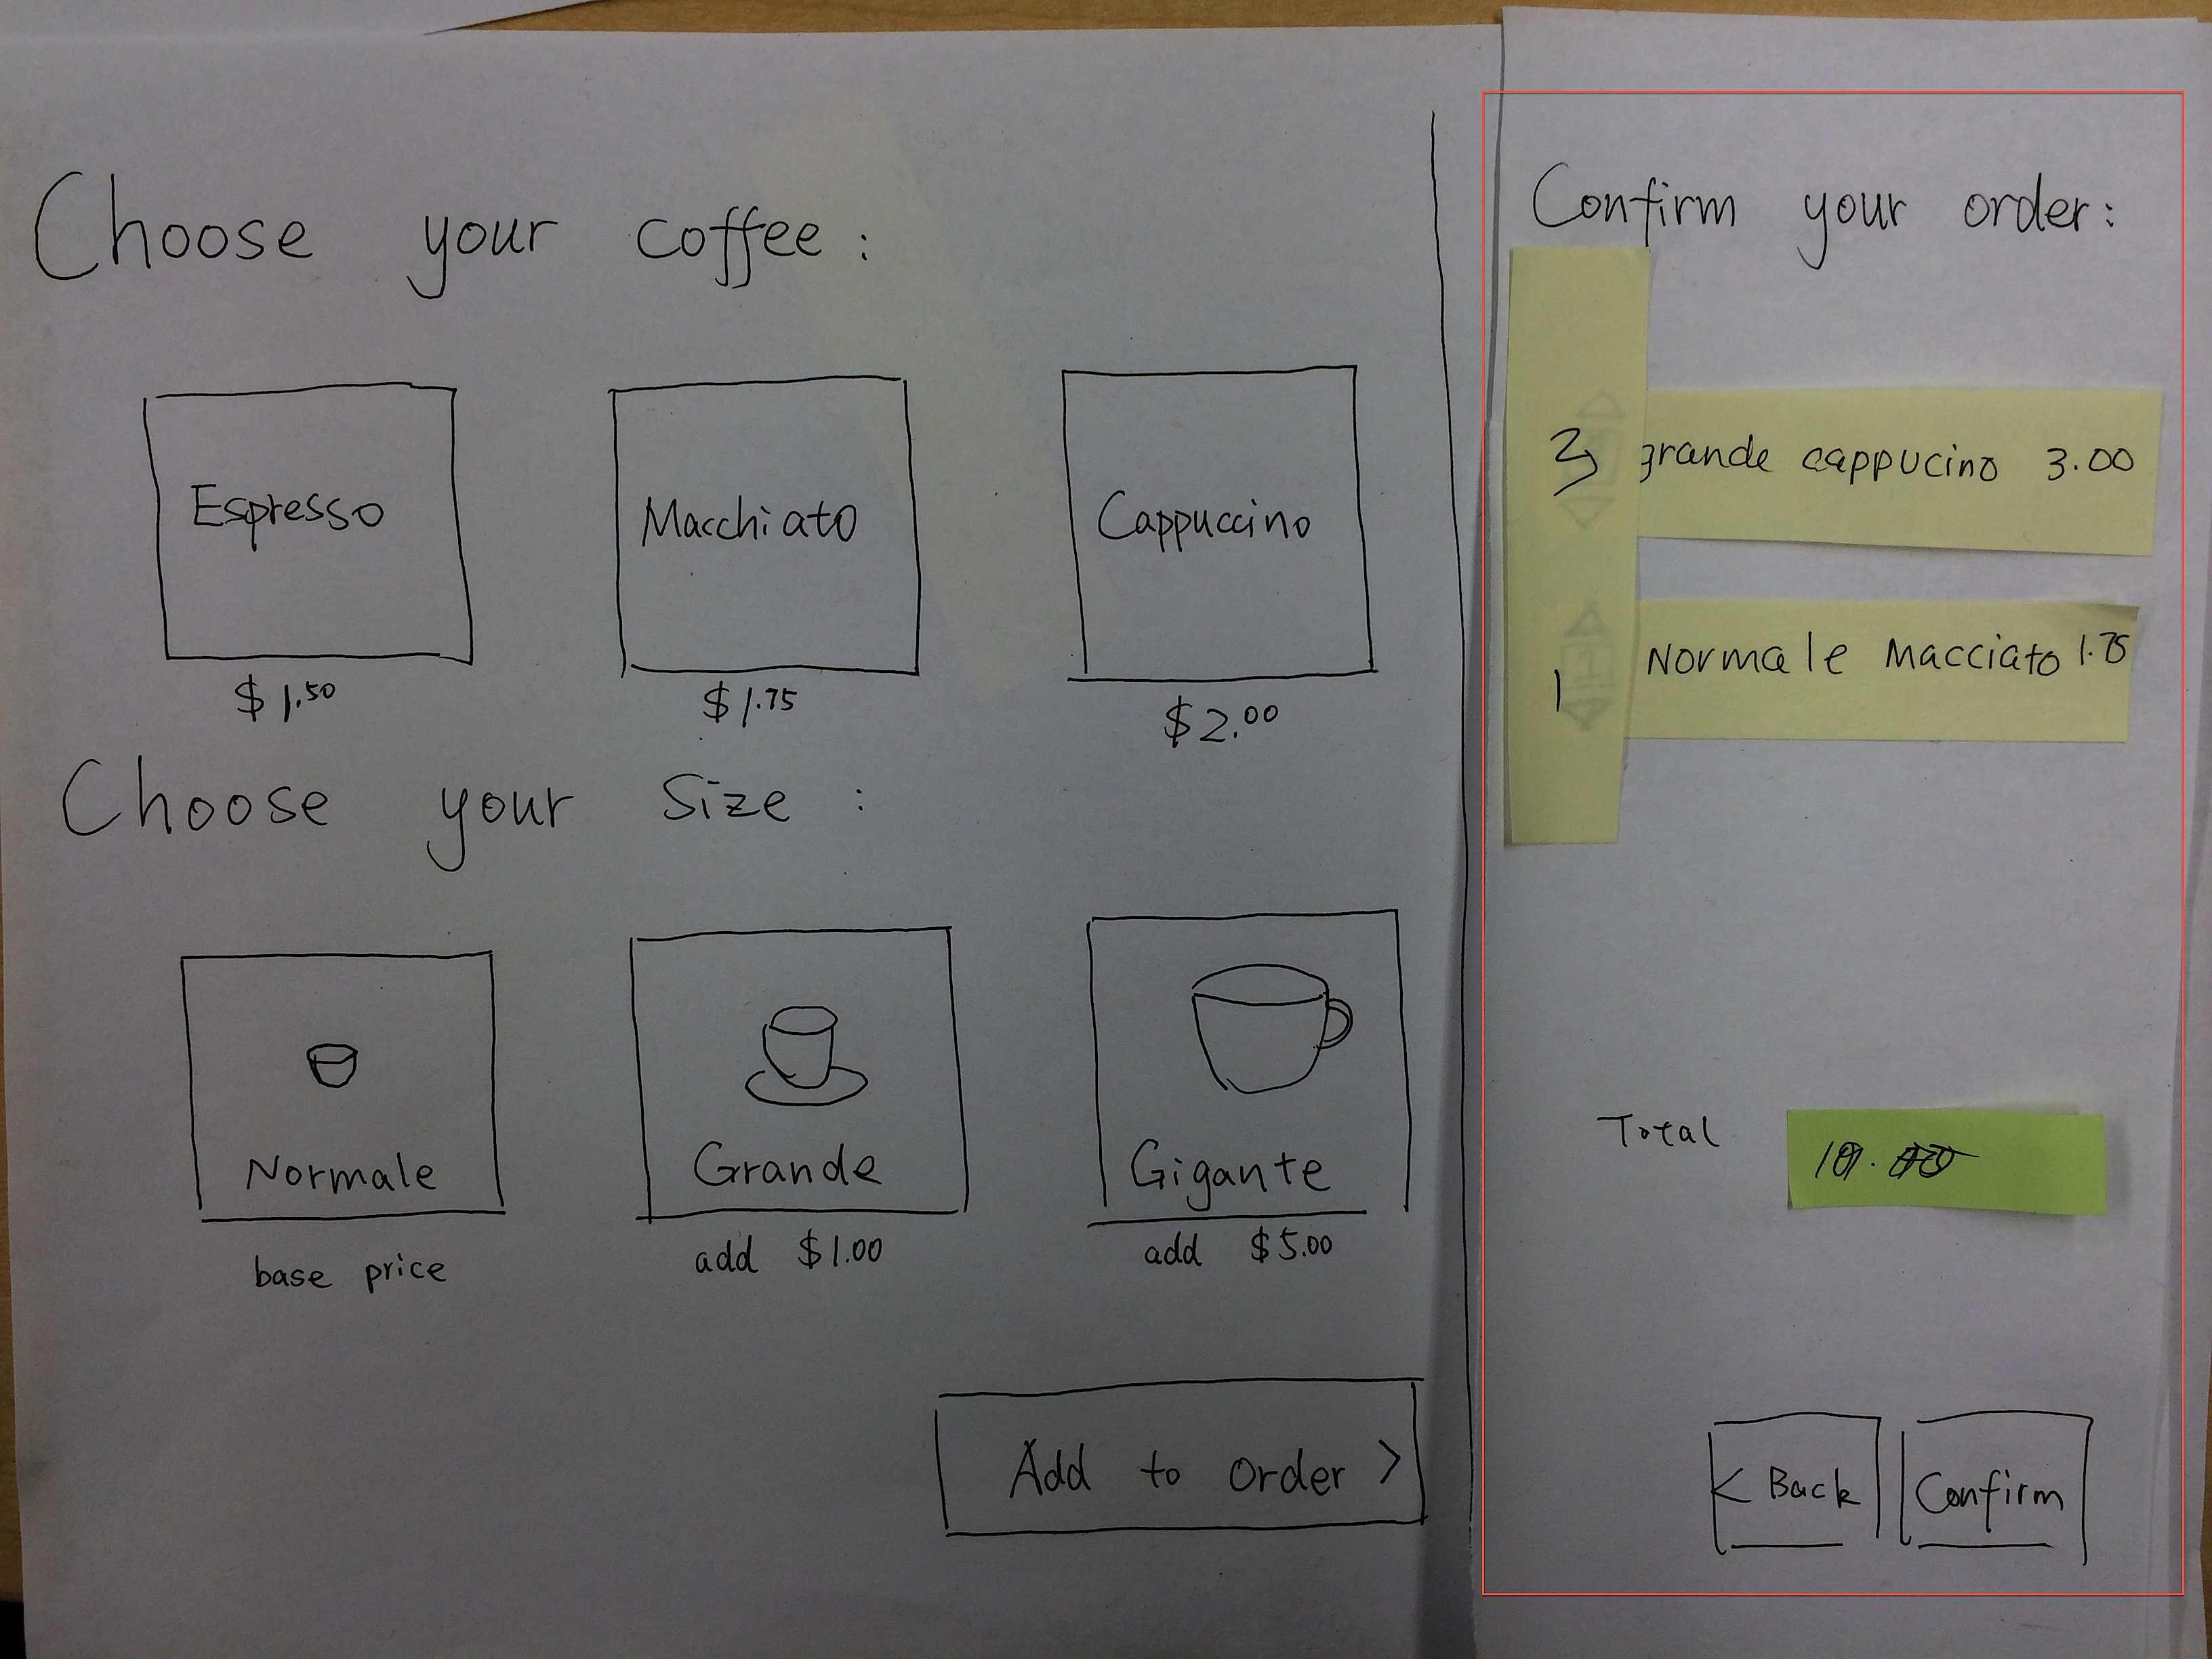 Choose your coffee :
Espresso
$1.50
Macchiato
$1.75
Cappuccino
$2.00
Choose your Size :
Normale
base price
Grande
add $1.00
Gigante
add $5.00
Add to order >
Confirm your order:
grande cappucino 3.00
1 Normale Macciato 1.75
Total
< Back
Confirm